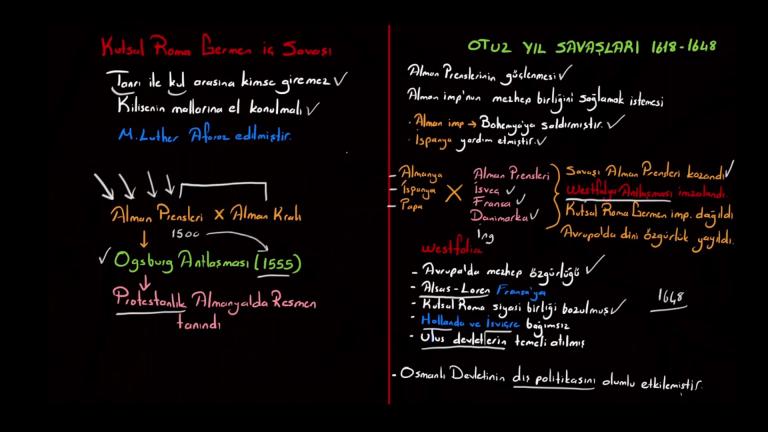 Kutsal Roma Germen iç Savaşı
Tanrı ile kul arasına kimse giremez ✓
Kilisenin mallarına el konulmalı ✓
M.Luther Aforoz edilmiştir.
Alman Prensleri X Alman Kralı
1500
✓ Ogsburg Antlaşması (1555)
Protestanlık Almanya'da Resmen
tanındı
OTUZ YIL SAVAŞLARI 1618-1648
Alman Prenslerinin güçlenmesi ✓
Alman imp'nun mezhep birliğini sağlamak istemesi
. Alman imp → Bohemya'ya saldırmıştır. ✓
. İspanya yardım etmiştir. ✓
- Almanya
- İspanya
- Papa
X
Alman Prensleri
İsveç ✓
Fransa ✓
Danimarka ✓
ing
Savaşı Alman Prensleri kazandı ✓
Westfalya Antlaşması imzalandı
Kutsal Roma Germen imp. dağıldı
Avrupa'da dini özgürlük yayıldı.
Westfalia
- Avrupa'da mezhep özgürlüğü ✓
- Alsas-Loren Fransa'ya
- Kutsal Roma siyasi birliği bozulmuş ✓
- Hollanda ve İsviçre bağımsız
- Ulus devletlerin temeli atılmış
1648
- Osmanlı Devletinin dış politikasını olumlu etkilemiştir.